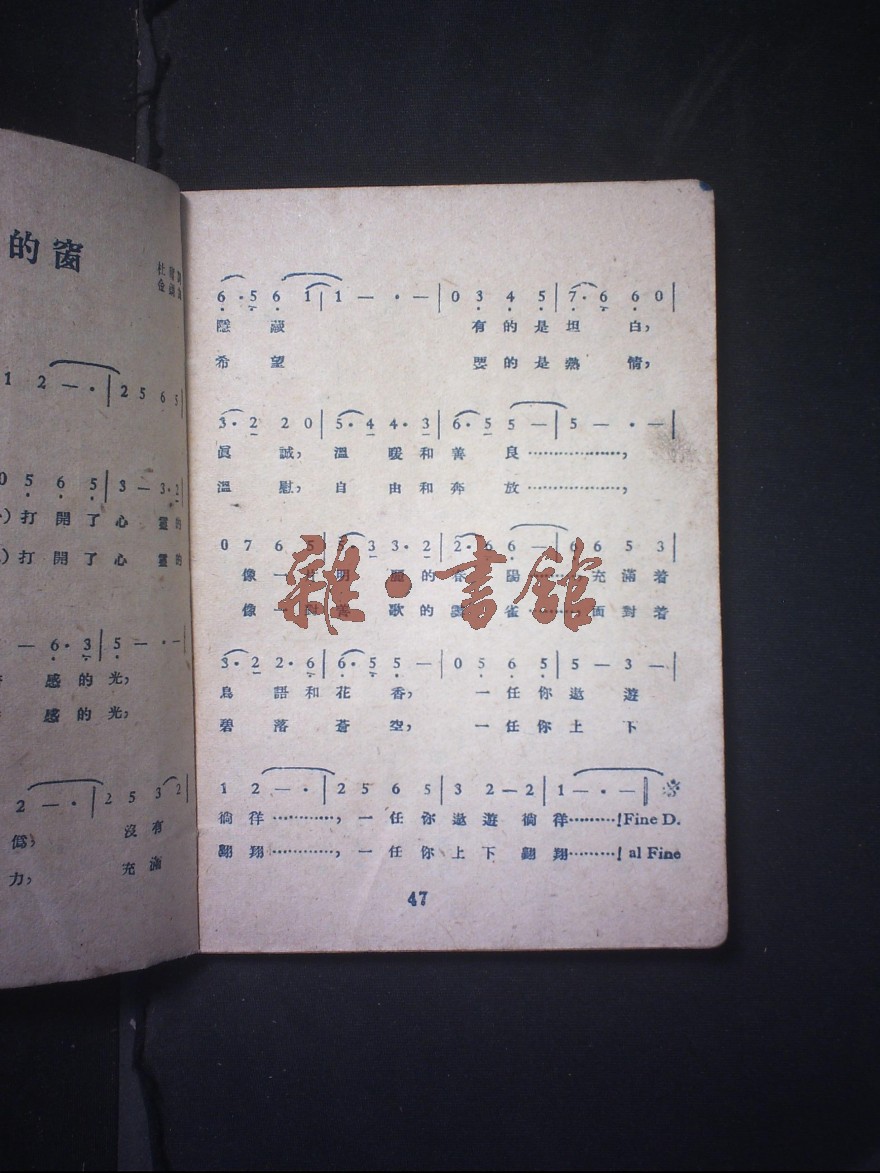 的窗
1 2 — · | 2 5 6 5
0 5 6 5 | 3 — 3·2
)打開了心靈的
)打開了心靈的
— 6·3 | 5 — · —
感的光,
感的光,
2 — · | 2 5 3 2
僞, 沒有
力, 充滿
6·5 6 1 | 1 — · — | 0 3 4 5 | 7·6 6 0 |
隱藏 有的是坦白,
希望 要的是熱情,
3·2 2 0 | 5·4 4·3 | 6·5 5 — | 5 — · — |
眞誠, 溫暖和善良…………………,
溫慰, 自由和奔放…………………,
0 7 6 5 | 5·3 3·2 | 2·6 6 — | 6 6 5 3
像一 明麗的 陽………,充滿着
像一 歌的 雀………,面對着
3·2 2·6 | 6·5 5 — | 0 5 6 5 | 5 — 3 — |
鳥語和花香, 一任你遨遊
碧落蒼空, 一任你上下
1 2 — · | 2 5 6 5 | 3 2 — 2 | 1 — · — ‖ ※
徜徉…………,一任你遨遊徜徉………!Fine D.
翺翔…………,一任你上下翺翔………! al Fine
47
雜·書館